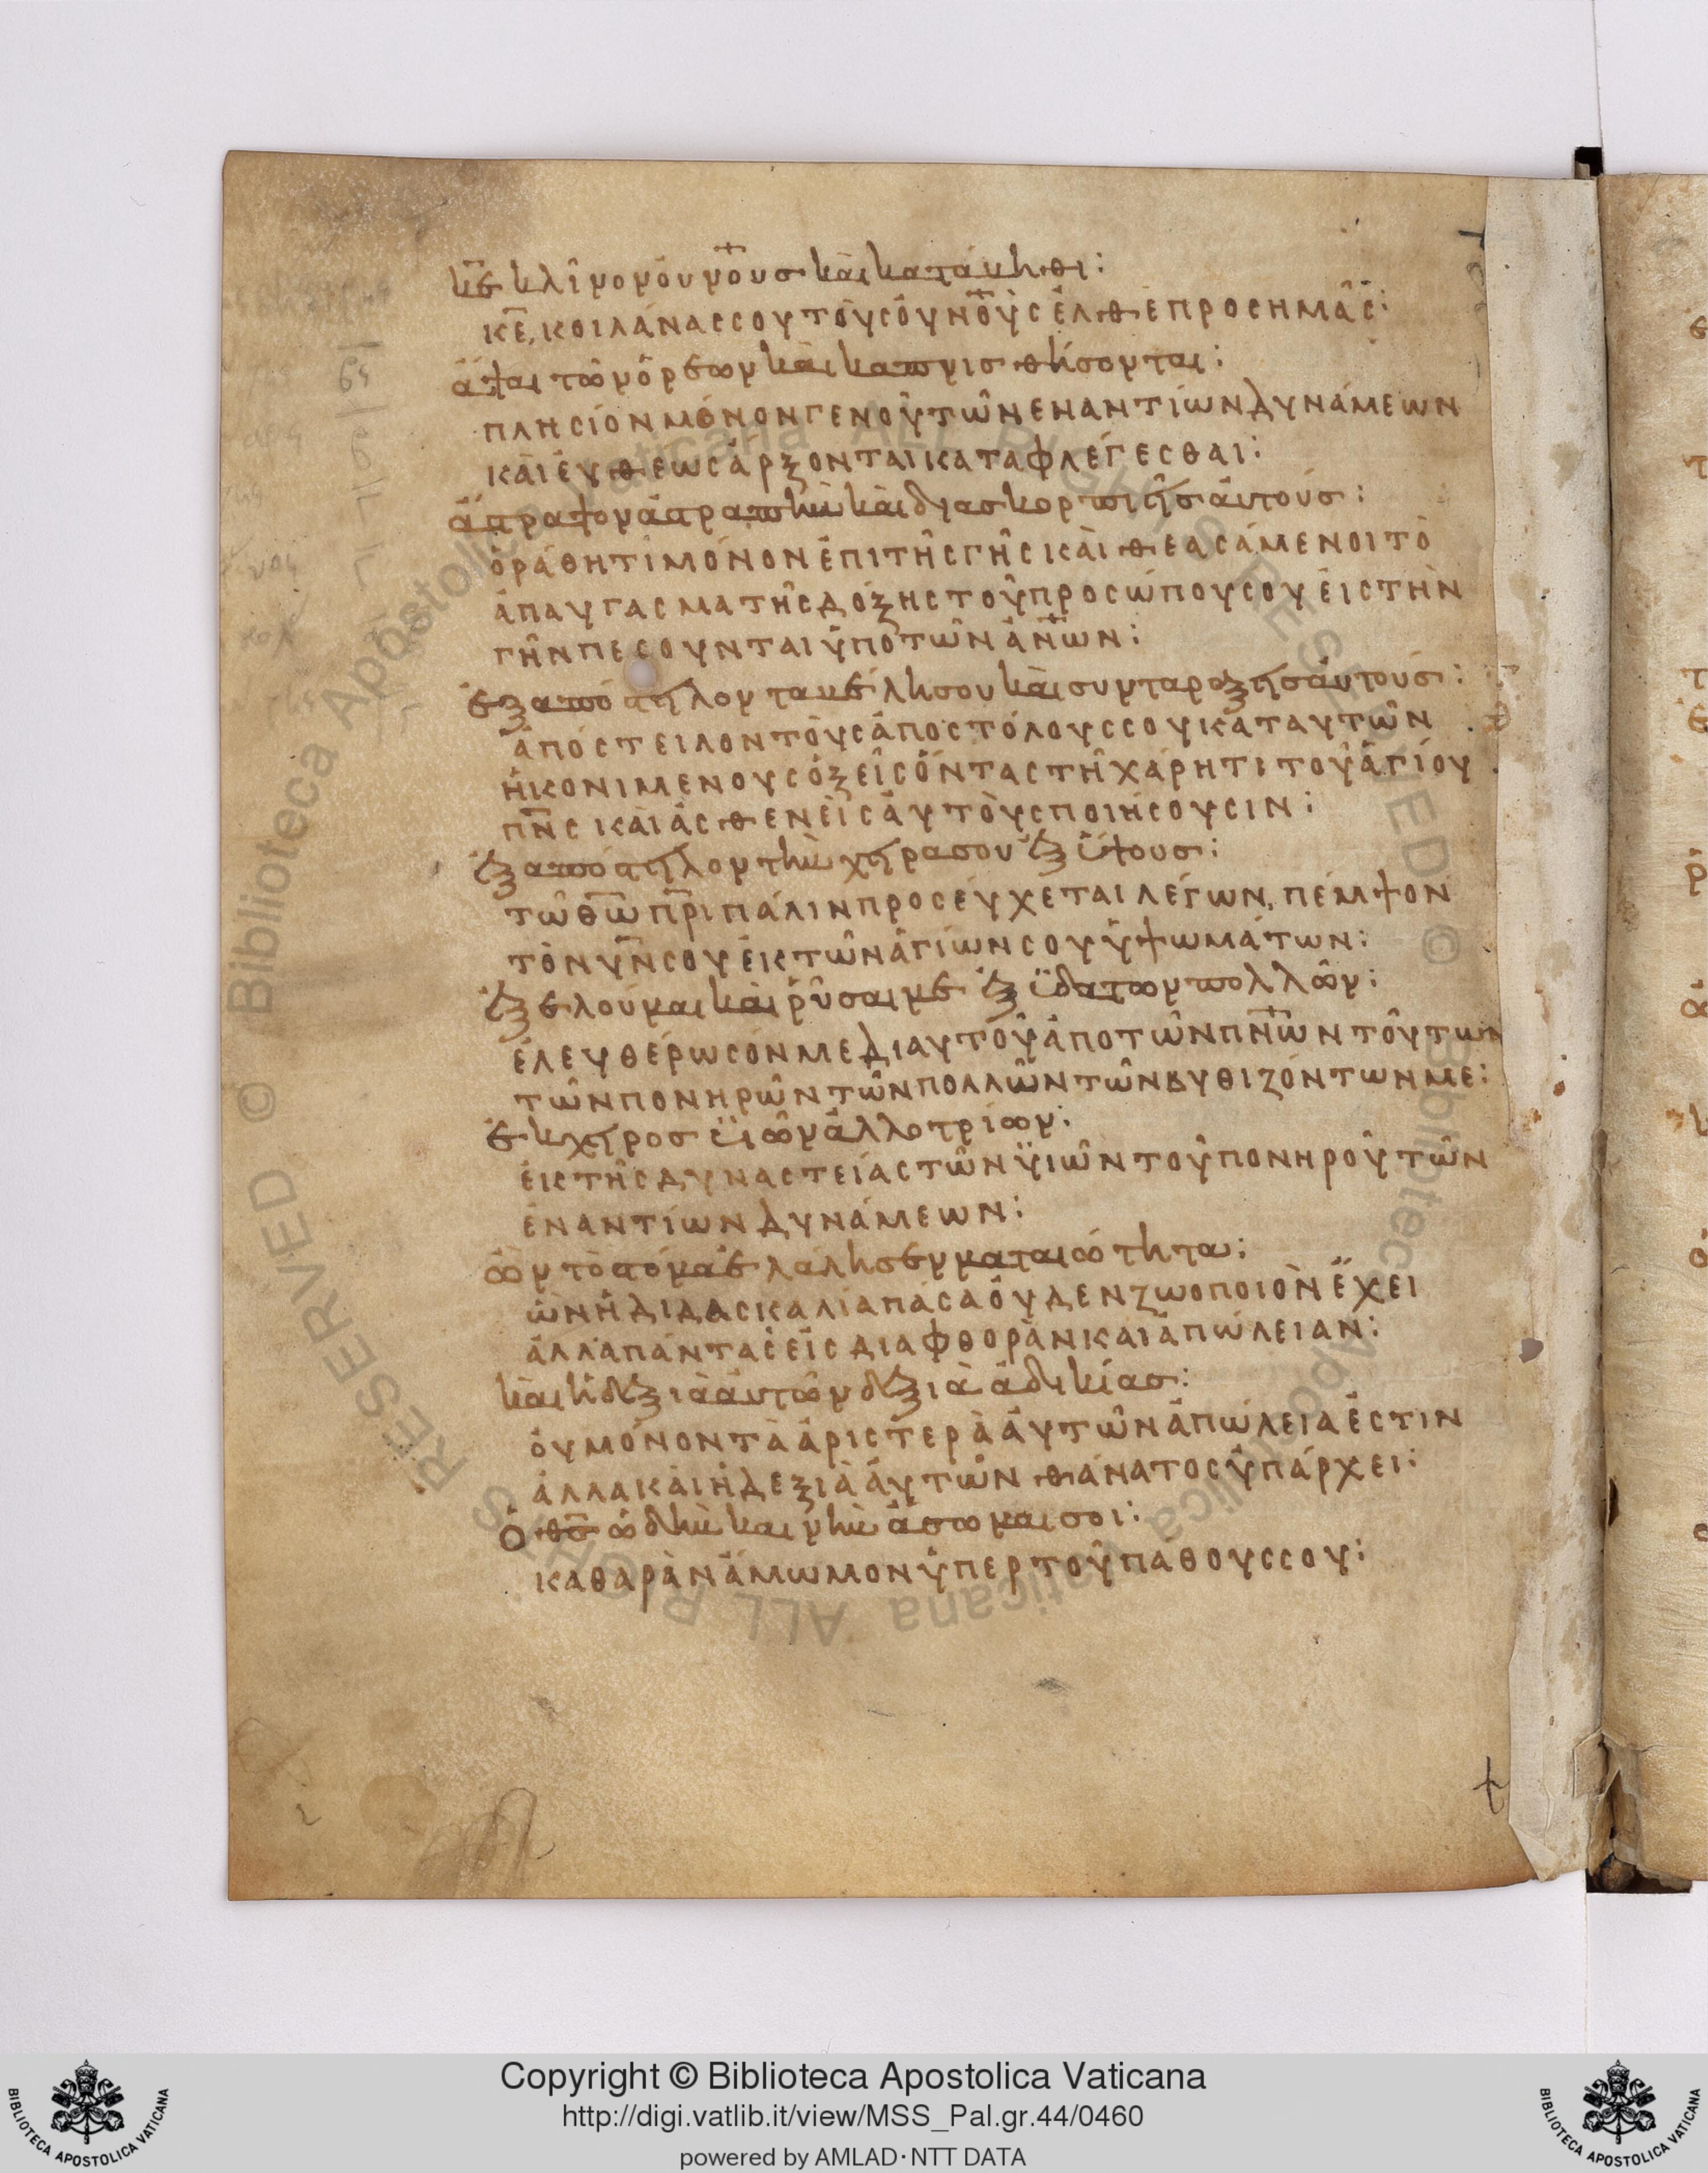 κ̅ε̅ κλῖνον ὀυν̅ο̅υσ καὶ κατάνηθι:
κ̅ε̅, κοιλάνας σου τοὺς ὀυν̅ο̅ὺς ἐλθὲ προς ημᾶς:
ἅψαι τῶν ὀρέων καὶ καπνισθήσονται:
πλησίον μόνον γενοῦ τῶν εναντίων δυνάμεων
καὶ ἐυθεως ἄρξονται καταφλέγεσθαι:
ἄστραψον ἀστραπὴν καὶ διασκορπιεῖσ ἀυτούσ:
ὁράθητι μόνον ἐπι τῆς γῆς καὶ θεασάμενοι τὸ
ἀπαυγασμα τῆς δόξης τοῦ προσώπου σου ἐις τὴν
γῆν πεσουνται ὑπο τῶν ἀν̅ων:
ἐξαπόστειλον τα μέλη σου καὶ συνταροξεισ ἀυτούσ:
ἀπόστειλον τοὺς ἀποστόλους σου κατ αυτῶν
ἠκονιμενους ὀξεῖς ὄντας τῆ χάρητι τοῦ ἁγίου
π̅ν̅ς καὶ ἀσθενεὶς ἀυτοὺς ποιήσουσιν:
ἐξαπόστειλον τὴν χεῖρα σου ἐξ ὕψους:
τῶ θ̅ω̅ π̅ρ̅ι πάλιν προσέυχεται λέγων, πέμψον
τὸν υ̅ν̅ σου ἐκ τῶν ἁγίων σου ὑψωμάτων:
ἐξελού μαι καὶ ῥῦσαι με ἐξ ὑδατων πολλῶν:
ἐλευθέρωσόν με δι αυτοῦ ἀπο τῶν π̅ν̅ων τούτων
τῶν πονηρῶν τῶν πολλῶν τῶν βυθιζόντων με:
ἐκ χειρος ὑιῶν ἀλλοτρίων:
ἐκ τῆς δυναστείας τῶν ὑιῶν τοῦ πονηροῦ τῶν
ἐναντίων δυνάμεων:
ὧν τὸ στόμα ἐλάλησεν ματαιότητα:
ὧν ἡ διδασκαλία πάσα ὀυδεν ζωοποιὸν ἔχει
ἀλλὰ πάντα εἰς διαφθορὰν και ἀπώλειαν:
καὶ ἡ δεξιὰ ἀυτῶν δεξιὰ ἀδικίας:
ὀυ μόνον τὰ ἀριστερὰ ἀυτῶν ἀπώλεια ἐστιν
ἀλλα καὶ ἡ δεξιὰ ἀυτῶν θάνατος ὑπάρχει:
Ὁ θ̅σ̅ ὠδὴν καινὴν ἄσωμαι σοι:
καθαρὰν ἄμωμον ὑπερ τοῦ πάθους σου:
Copyright © Biblioteca Apostolica Vaticana
http://digi.vatlib.it/view/MSS_Pal.gr.44/0460
powered by AMLAD·NTT DATA
BIBLIOTECA APOSTOLICA VATICANA
BIBLIOTECA APOSTOLICA VATICANA